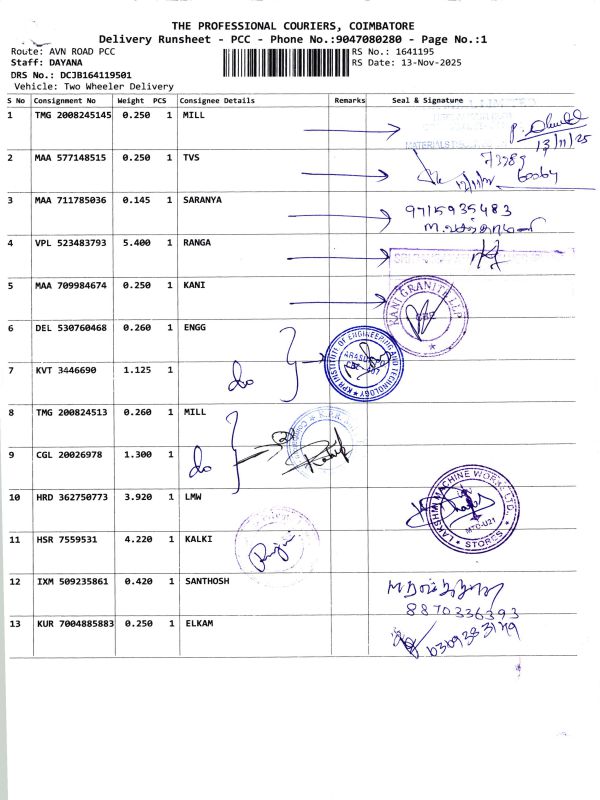 THE PROFESSIONAL COURIERS, COIMBATORE
Delivery Runsheet - PCC - Phone No.:9047080280 - Page No.:1
Route: AVN ROAD PCC
Staff: DAYANA
DRS No.: DCJB164119501
Vehicle: Two Wheeler Delivery
RS No.: 1641195
RS Date: 13-Nov-2025
S No Consignment No Weight PCS Consignee Details Remarks Seal & Signature
1 TMG 2008245145 0.250 1 MILL
13/11/25
2 MAA 577148515 0.250 1 TVS
73989
60064
3 MAA 711785036 0.145 1 SARANYA
9715935483
4 VPL 523483793 5.400 1 RANGA
5 MAA 709984674 0.250 1 KANI
KANI GRANITE LLP
CBE
6 DEL 530760468 0.260 1 ENGG
KPR INSTITUTE OF ENGINEERING AND TECHNOLOGY
7 KVT 3446690 1.125 1
do
8 TMG 200824513 0.260 1 MILL
9 CGL 20026978 1.300 1
do
10 HRD 362750773 3.920 1 LMW
LAKSHMI MACHINE WORKS LTD.
MTD-U21
STORES
11 HSR 7559531 4.220 1 KALKI
12 IXM 509235861 0.420 1 SANTHOSH
8870336393
13 KUR 7004885883 0.250 1 ELKAM